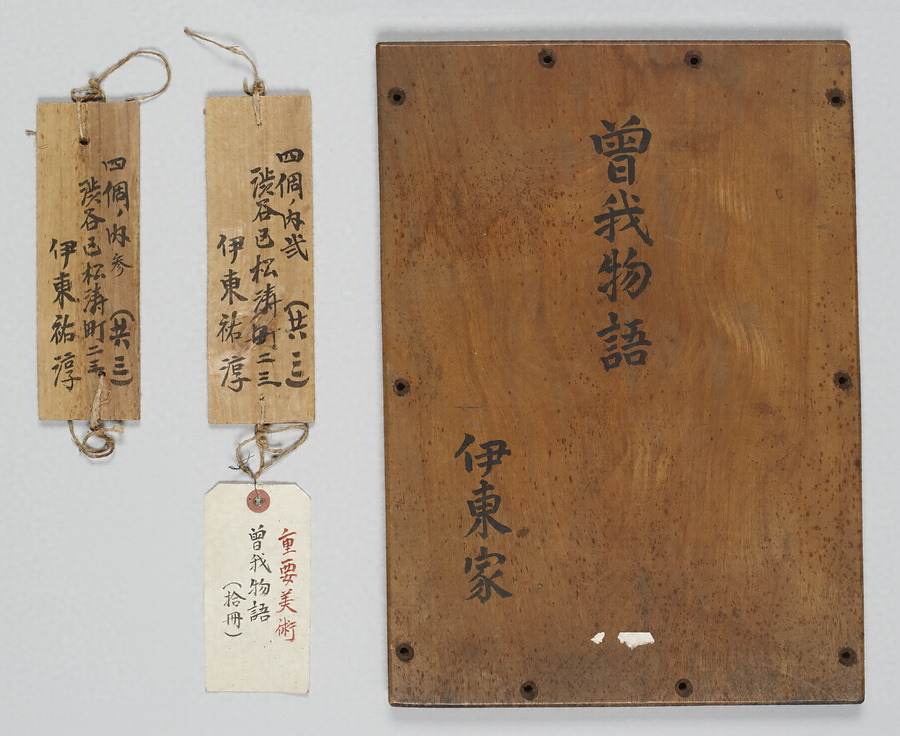 曾我物語
伊東家
四個ノ内弐 (共三)
渋谷区松濤町二三
伊東祐淳
重要美術
曾我物語
(拾冊)
四個ノ内参 (共三)
渋谷区松濤町二三
伊東祐淳